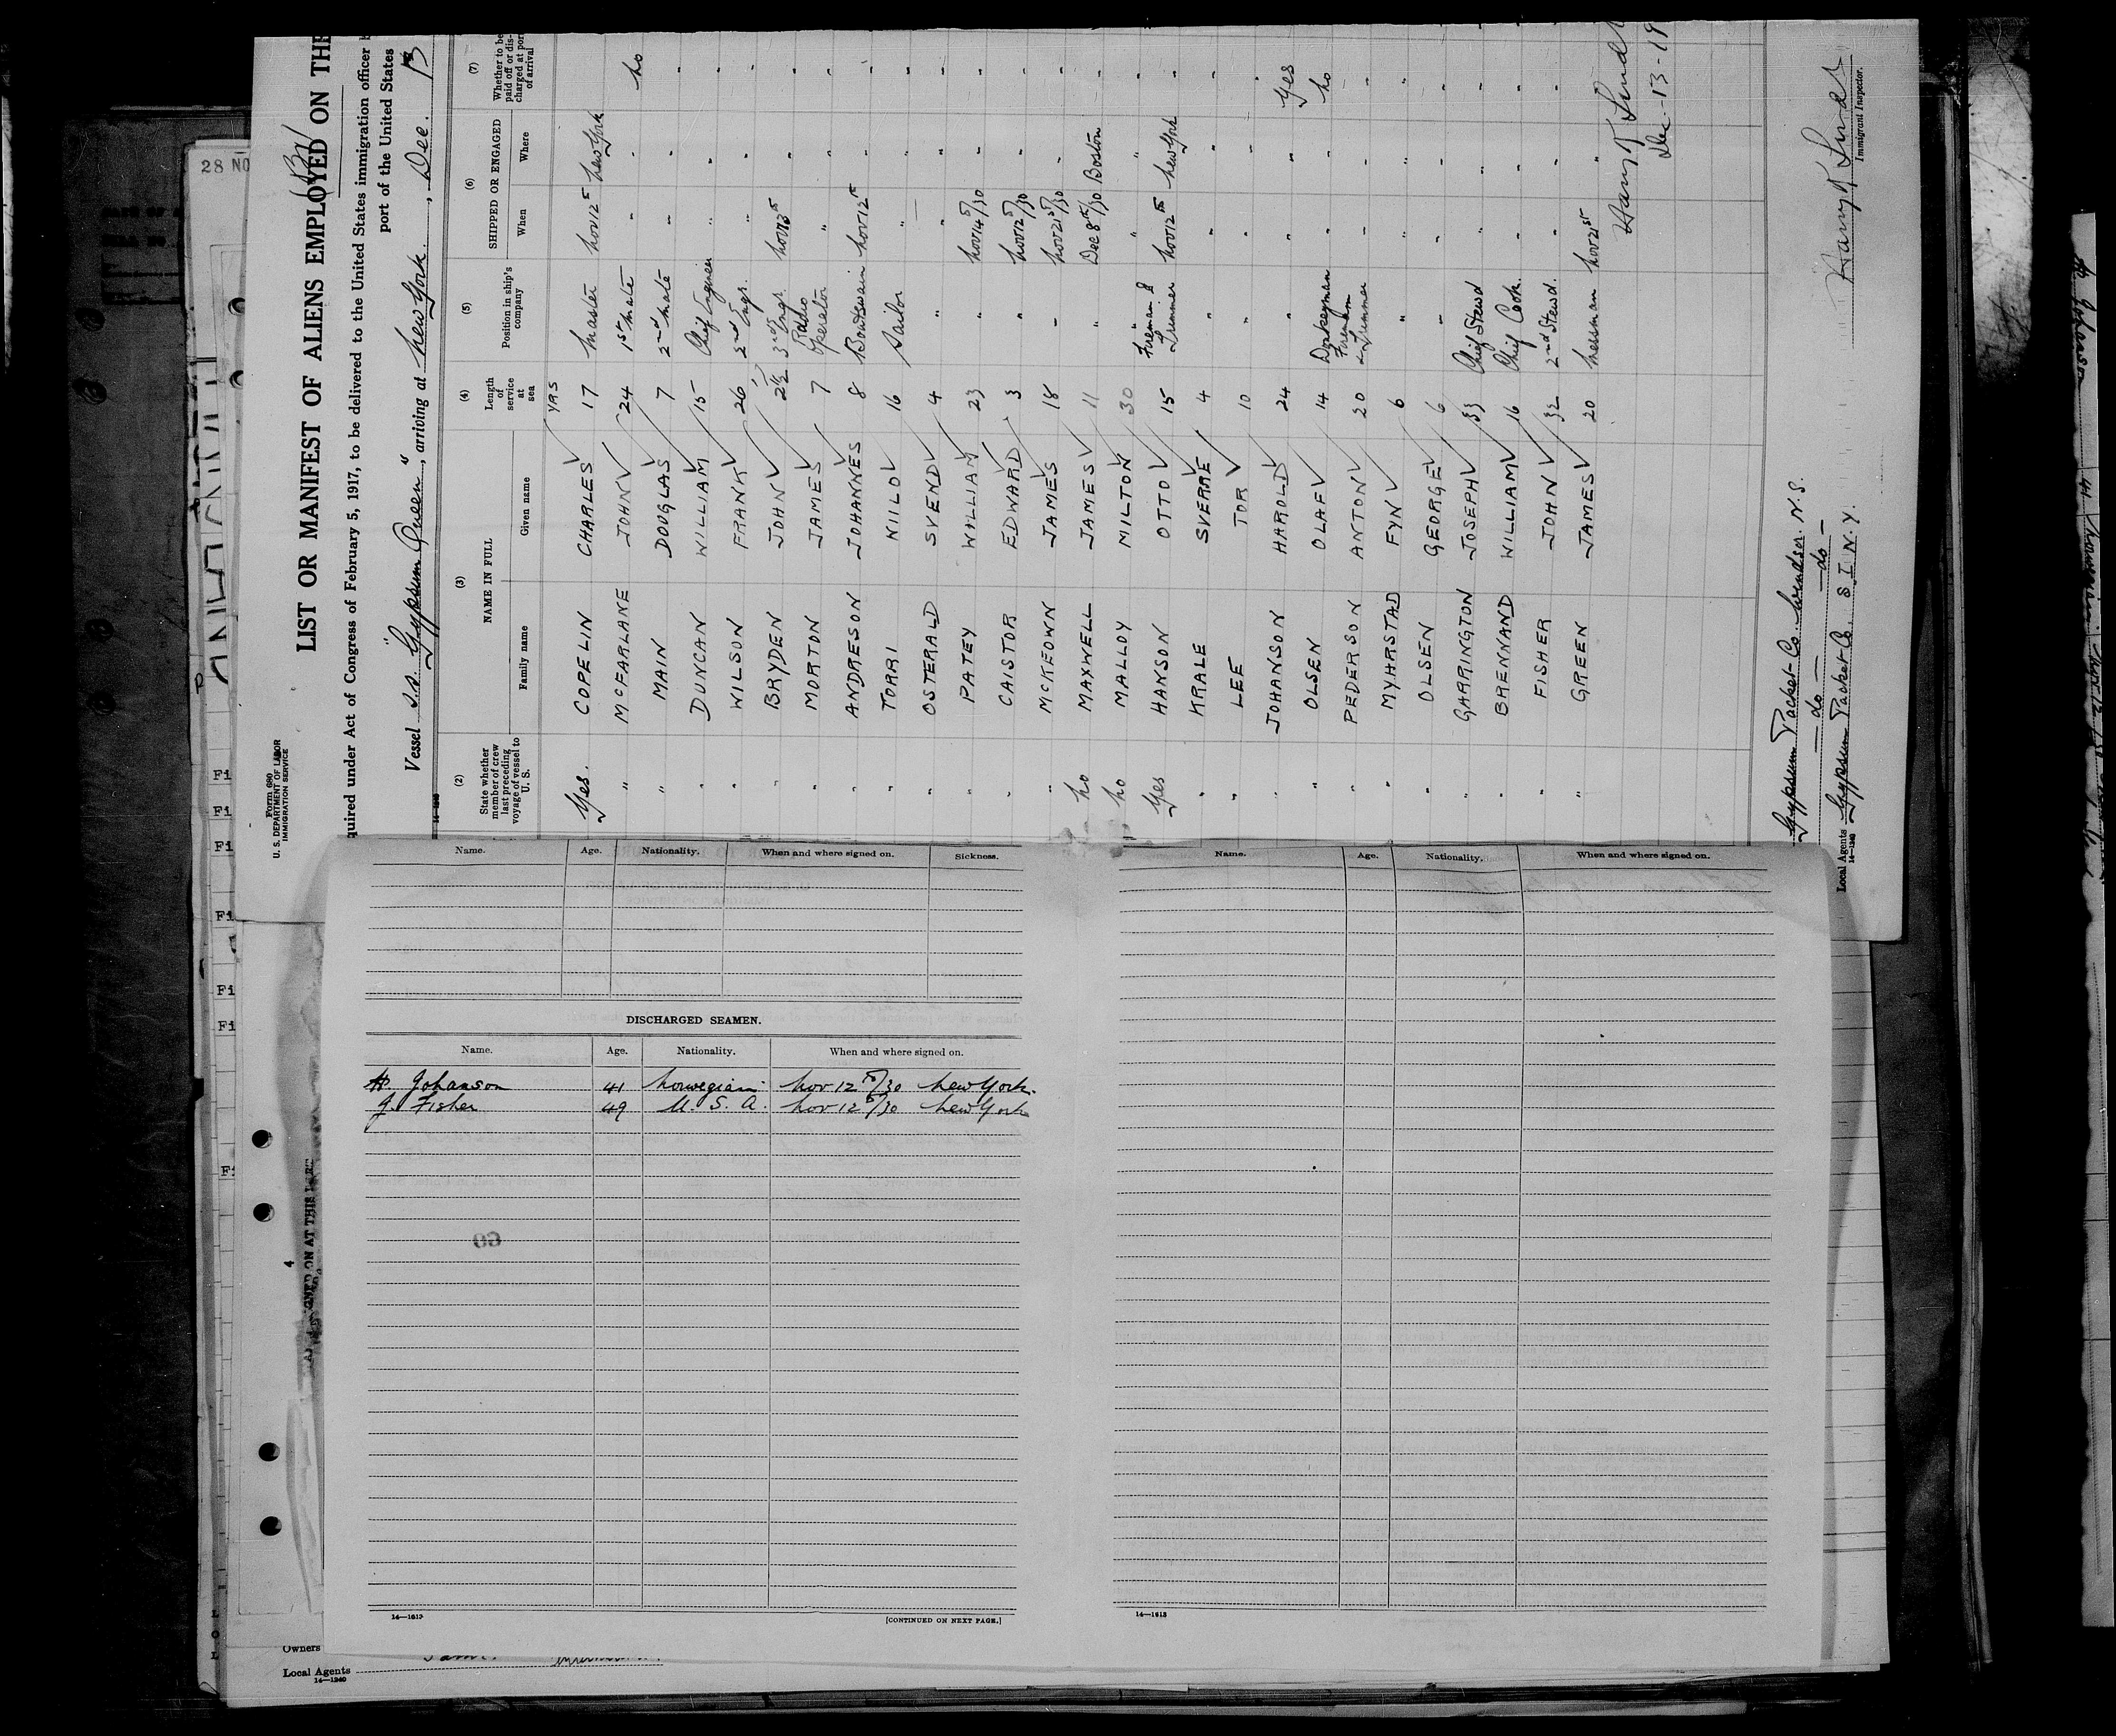 28 NO
Form 680
U. S. DEPARTMENT OF LABOR
IMMIGRATION SERVICE
(Br)
LIST OR MANIFEST OF ALIENS EMPLOYED ON THE
quired under Act of Congress of February 5, 1917, to be delivered to the United States immigration officer
port of the United States
Vessel S.S. "Gypsum Queen", arriving at New York, Dec. 13
14—1240
(2) (3) (4) (5) (6) (7)
State whether member of crew last preceding voyage of vessel to U. S.
NAME IN FULL
Family name Given name
Length of service at sea
Position in ship's company
SHIPPED OR ENGAGED
When Where
Whether to be paid off or discharged at port of arrival
yrs
Yes. COPELIN CHARLES 17 Master Nov 12th New York
" McFARLANE JOHN 24 1st Mate " " No
" MAIN DOUGLAS 7 2nd Mate " " "
" DUNCAN WILLIAM 15 Chief Engineer " " "
" WILSON FRANK 26 2nd Engr. " " "
" BRYDEN JOHN 2½ 3rd Engr. Nov 13th " "
" MORTON JAMES 7 Radio Operator " " "
" ANDRESON JOHANNES 8 Boatswain Nov 12th " "
" TORRI NILO 16 Sailor " " "
" OSTERALD SVEND 4 " " " "
" PATEY WILLIAM 23 " Nov 14th/30 " "
" CAISTOR EDWARD 3 " Nov 12th/30 " "
" McKEOWN JAMES 18 " Nov 21st/30 " "
No MAXWELL JAMES 11 " Dec 8th/30 Boston "
No MALLOY MILTON 30 " " " "
Yes HANSON OTTO 15 Fireman & Trimmer Nov 12th New York "
" KRALE SVERRE 4 " " " "
" LEE TOR 10 " " " "
" JOHANSON HAROLD 24 " " Yes
" OLSEN OLAF 14 Donkeyman " " No
" PEDERSON ANTON 20 Fireman & Trimmer " " "
" MYHRSTAD FYN 6 " " " "
" OLSEN GEORGE 6 " " " "
" GARRINGTON JOSEPH 33 Chief Stewd " " "
" BRENNAND WILLIAM 16 Chief Cook. " " "
" FISHER JOHN 32 2nd Stewd. " " "
" GREEN JAMES 20 Messman Nov 21st "
Dec-13-19
Gypsum Packet Co. Windsor. N.S.
— do — — do —
Local Agents Gypsum Packet Co. S I N.Y.
14—1240
Immigrant Inspector.
Name. Age. Nationality. When and where signed on. Sickness.
DISCHARGED SEAMEN.
Name. Age. Nationality. When and where signed on.
H. Johanson 41 Norwegian Nov 12th/30 New York.
J. Fisher 49 U. S. A. Nov 12th/30 New York
60
14—1613
[CONTINUED ON NEXT PAGE.]
Name. Age. Nationality. When and where signed on.
14—1613
4
Owners
Local Agents
14—1240
Fi
Fi
Fi
Fi
Fi
Fi